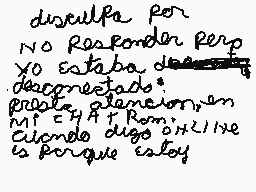 disculpa por
NO Responder Perp
yo estaba
desconectado.
presta atencion, en
Mi CHAT Rom.
cuando digo ONLINE
es porque estoy